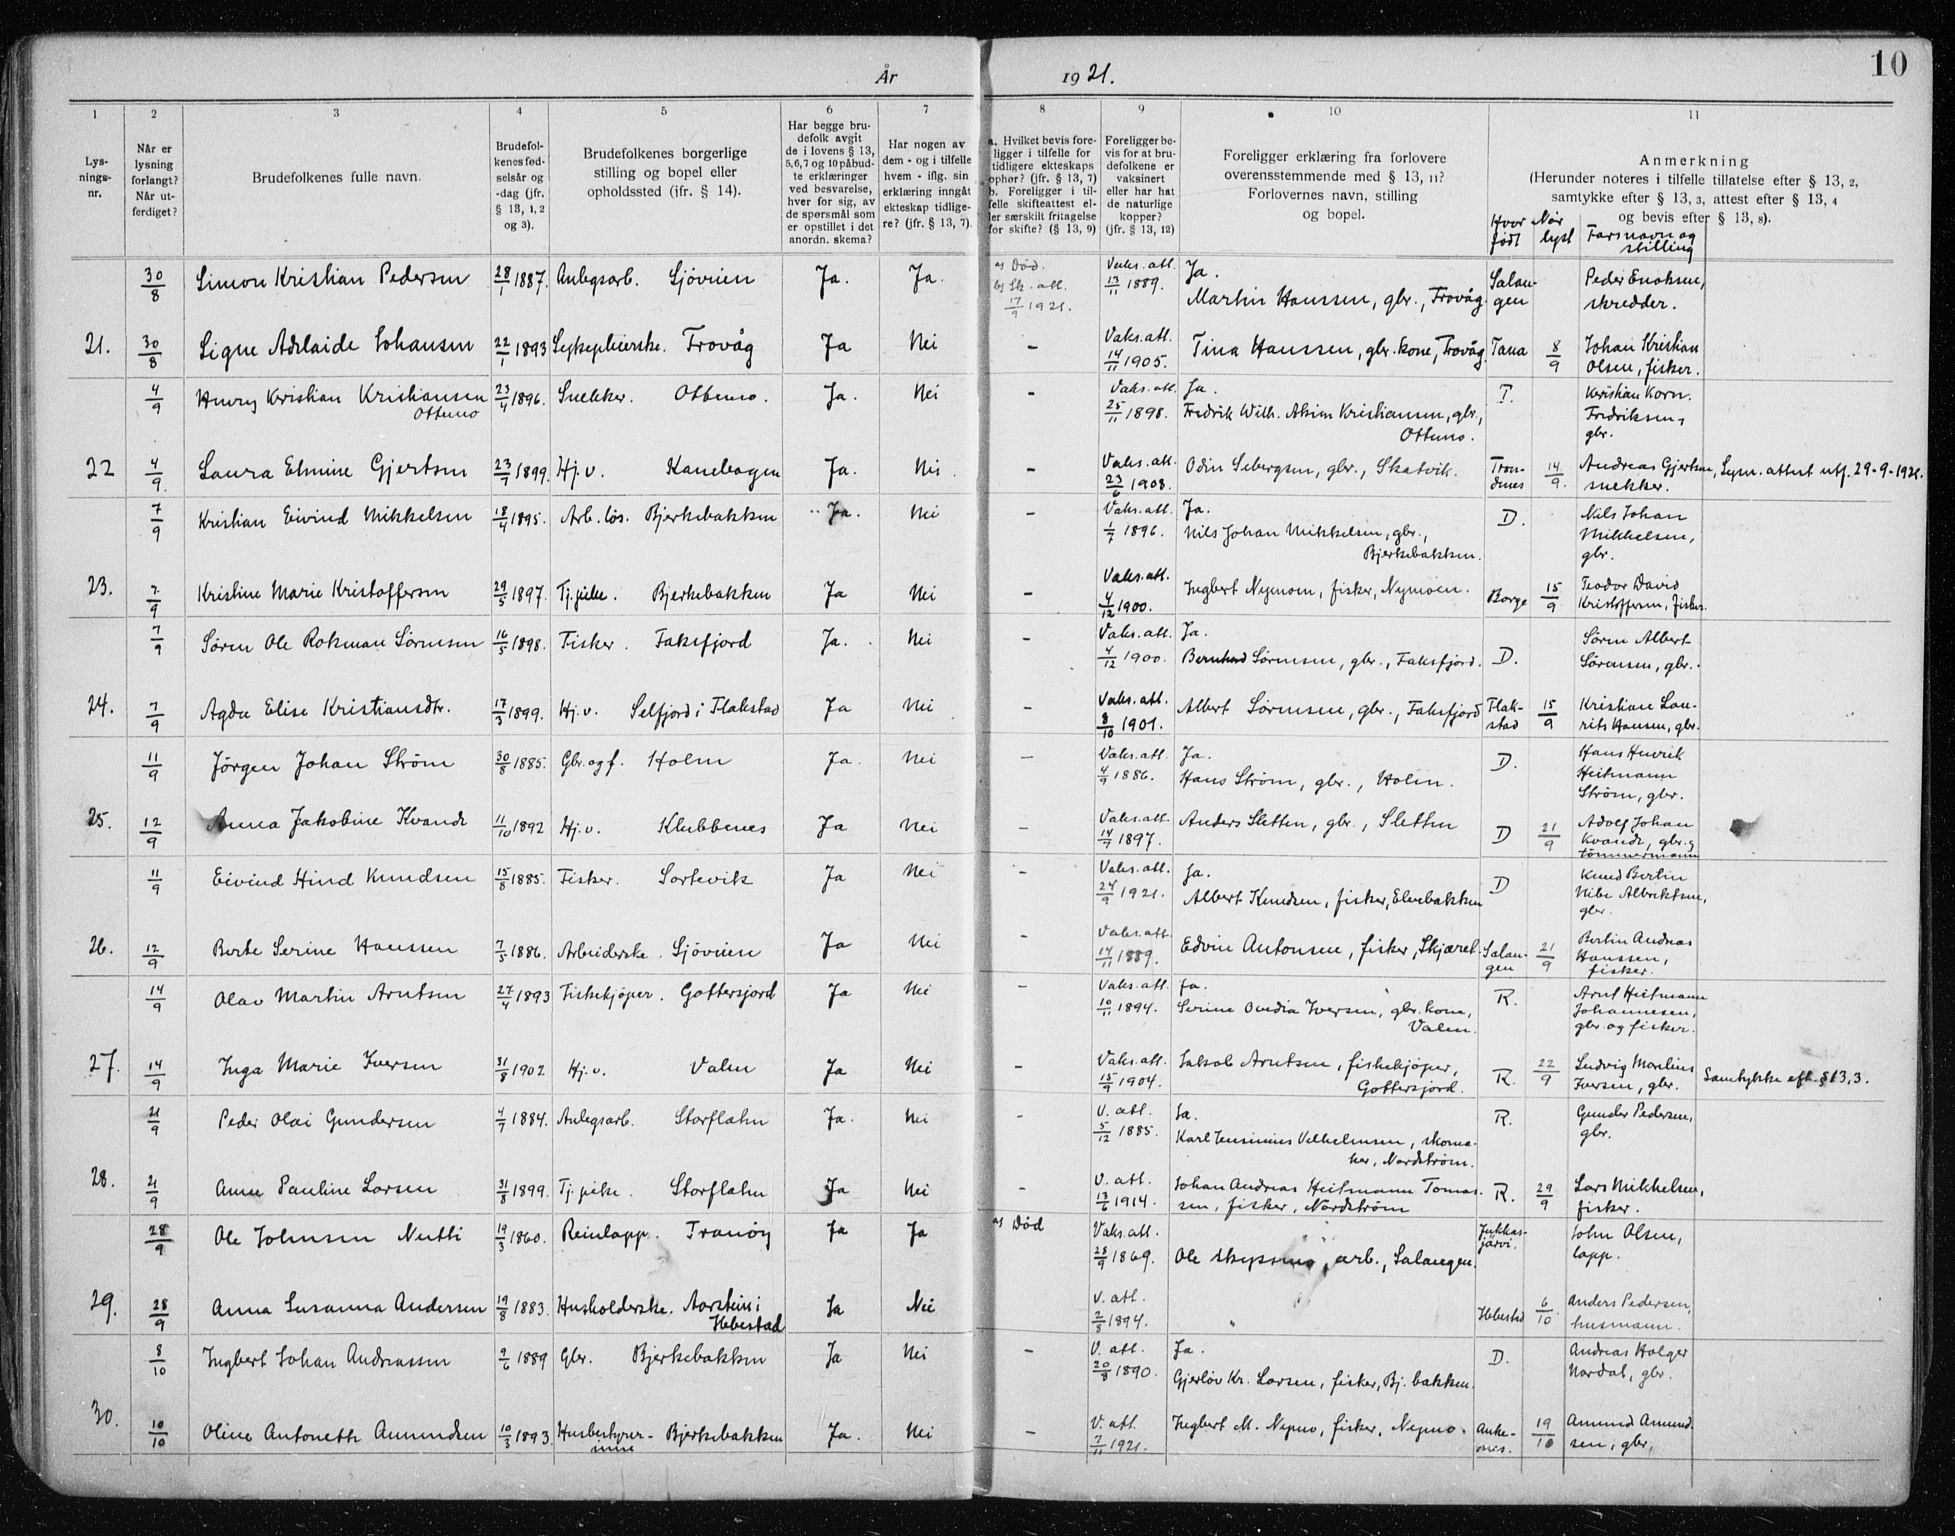 År 1921.
10
1 2 3 4 5 6 7 8 9 10 11
Lys-
nings-
nr.
Når er
lysning
forlangt?
Når ut-
ferdiget?
Brudefolkenes fulle navn.
Brudefol-
kenes fød-
selsår og
-dag (jfr.
§ 13, 1, 2
og 3).
Brudefolkenes borgerlige
stilling og bopel eller
opholdssted (jfr. § 14).
Har begge bru-
defolk avgit
de i lovens § 13,
5,6,7 og 10 påbud-
te erklæringer
ved besvarelse,
hver for sig, av
de spørsmål som
er opstillet i det
anordn. skema?
Har nogen av
dem - og i tilfelle
hvem - iflg. sin
erklæring inngåt
ekteskap tidlige-
re? (jfr. § 13, 7).
a. Hvilket bevis fore-
ligger i tilfelle for
tidligere ekteskaps
ophør? (jfr. § 13, 7)
b. Foreligger i til-
felle skifteattest el-
ler særskilt fritagelse
for skifte? (§ 13, 9)
Foreligger be-
vis for at bru-
defolkene er
vaksinert
eller har hat
de naturlige
kopper?
(jfr. § 13, 12)
Foreligger erklæring fra forlovere
overensstemmende med § 13, 11?
Forlovernes navn, stilling
og bopel.
Anmerkning
(Herunder noteres i tilfelle tillatelse efter § 13, 2,
samtykke efter § 13, 3, attest efter § 13, 4
og bevis efter § 13, 8).
Hvor født
Når lyst
Farsnavn og stilling
30/8 Simon Kristian Pedersen 28/1 1887. Anlegsarb. Sjøveien Ja. Ja. a) Død. b) Sk. att. 17/9 1921. Vaks. att. 13/11 1889. Ja. Martin Hanssen, gbr., Frovåg. Salan-gen Peder Enoksen, skredder.
21. 30/8 Signe Adelaide Johansen 22/1 1893 Sykepleierske. Frovåg Ja Nei - Vaks. att. 14/11 1905. Tina Hanssen, gbr. kone, Frovåg. Tana 8/9 Johan Kristian Olsen, fisker.
4/9 Henry Kristian Kristiansen Ottemo 23/4 1896. Snekker. Ottemo. Ja. Nei - Vaks. att. 25/11 1898. Ja. Fredrik Wilh. Akim Kristiansen, gbr., Ottemo. T. Kristian Korn. Fredriksen, gbr.
22 4/9. Laura Elmine Gjertsen 23/7 1899. Hj. v. Kanebogen Ja. Nei. - Vaks. att. 23/6 1908. Odin Sebergsen, gbr., Skatvik. Tron-denes 14/9. Andreas Gjertsen, snekker. Lysn. attest utf. 29-9-1921.
7/9 Kristian Eivind Mikkelsen 18/4 1895. Arb. løs. Bjerkebakken Ja. Nei - Vaks. att. 1/7 1896. Ja. Nils Johan Mikkelsen, gbr., Bjerkebakken. D. Nils Johan Mikkelsen, gbr.
23. 7/9 Kristine Marie Kristoffersen 29/5 1897. Tj. pike. Bjerkebakken Ja Nei - Vaks. att. 4/12 1900. Ingbert Nymoen, fisker, Nymoen. Borge 15/9 Teodor David Kristoffersen, fisker.
7/9 Søren Ole Rokman Sørensen 16/5 1898. Fisker. Faksfjord Ja. Nei - Vaks. att. 4/12 1900. Ja. Bernhard Sørensen, gbr., Faksfjord. D. Søren Albert Sørensen, gbr.
24. 7/9 Agda Elise Kristiansdtr. 17/3 1899. Hj. v. Selfjord i Flakstad Ja Nei - Vaks. att. 8/10 1901. Albert Sørensen, gbr., Faksfjord Flak-stad 15/9 Kristian Lau-rits Hansen, gbr.
11/9 Jørgen Johan Strøm 30/8 1885. Gbr. og f. Holm Ja. Nei - Vaks. att. 4/9 1886. Ja. Hans Strøm, gbr., Holm. D. Hans Henrik Heitmann Strøm, gbr.
25. 12/9 Anna Jakobine Kvande 11/10 1892 Hj. v. Klubbenes Ja Nei - Vaks. att. 14/7 1897. Anders Sletten, gbr., Sletten D 21/9 Adolf Johan Kvande, gbr. og tømmermann
11/9 Eivind Hind Knudsen 15/8 1885. Fisker. Sortevik Ja Nei - Vaks. att. 24/9 1921. Ja. Albert Knudsen, fisker, Elvebakken D Knud Bertin Nibe Albrektsen, gbr.
26. 12/9 Berte Serine Hanssen 7/5 1886. Arbeiderske. Sjøveien Ja Nei - Vaks. att. 14/11 1889. Edvin Antonsen, fisker, Skjæret. Salan-gen 21/9 Bertin Andreas Hanssen, fisker.
14/9 Olav Martin Arntsen 27/4 1893 Fiskekjøper. Gottersjord Ja Nei - Vaks. att. 10/11 1894. Ja. Serine Ovedia Iversen, gbr. kone, Valen. R. Arnt Heitmann Johannesen, gbr og fisker.
27. 14/9 Inga Marie Iversen 31/8 1902 Hj. v. Valen Ja Nei - Vaks. att. 15/9 1904. Jakob Arntsen, fiskekjøper, Gottersjord. R. 22/9 Ludvig Morelius Iversen, gbr. Samtykke eft. § 13, 3.
21/9 Peder Olai Gundersen 4/7 1884. Anlegsarb. Storflaten Ja. Nei - V. att. 5/12 1885. Ja. Karl Jensinius Velhelmsen, skoma-ker, Nordstrøm. R. Gunder Pedersen, gbr.
28. 21/9 Anne Pauline Larsen 31/8 1899. Tj. pike. Storflaten Ja Nei - V. att. 13/6 1914. Johan Andreas Heitmann Tomas-sen, fisker, Nordstrøm R. 29/9 Lars Mikkelsen, fisker.
28/9 Ole Johnsen Nutti 19/3 1860. Reinlapp. Tranøy Ja Ja a) Død Vaks. att. 28/9 1869. Ole Skypsmo, arb., Salangen. Jukkas-järvi. John Olsen, lapp.
29. 28/9 Anna Susanna Andersen 19/8 1883. Husholderske. Aarstein i Ibbestad Ja Nei V. att. 2/8 1894. Ibbestad 6/10 Anders Pedersen, husmann.
8/10 Ingbert Johan Andreassen 9/6 1889 Gbr. Bjerkebakken Ja Nei - V. att. 20/8 1890. Ja. Gjerløv Kr. Larsen, fisker, Bj. bakken. D. Andreas Holger Nordal, gbr.
30. 10/10 Oline Antonette Amundsen 10/3 1893. Husbestyrer-inne Bjerkebakken Ja. Nei - V. att. 7/11 1921. Ingbert M. Nymo, fisker, Nymo. Anke-nes. 19/10 Amund Amund-sen, gbr.